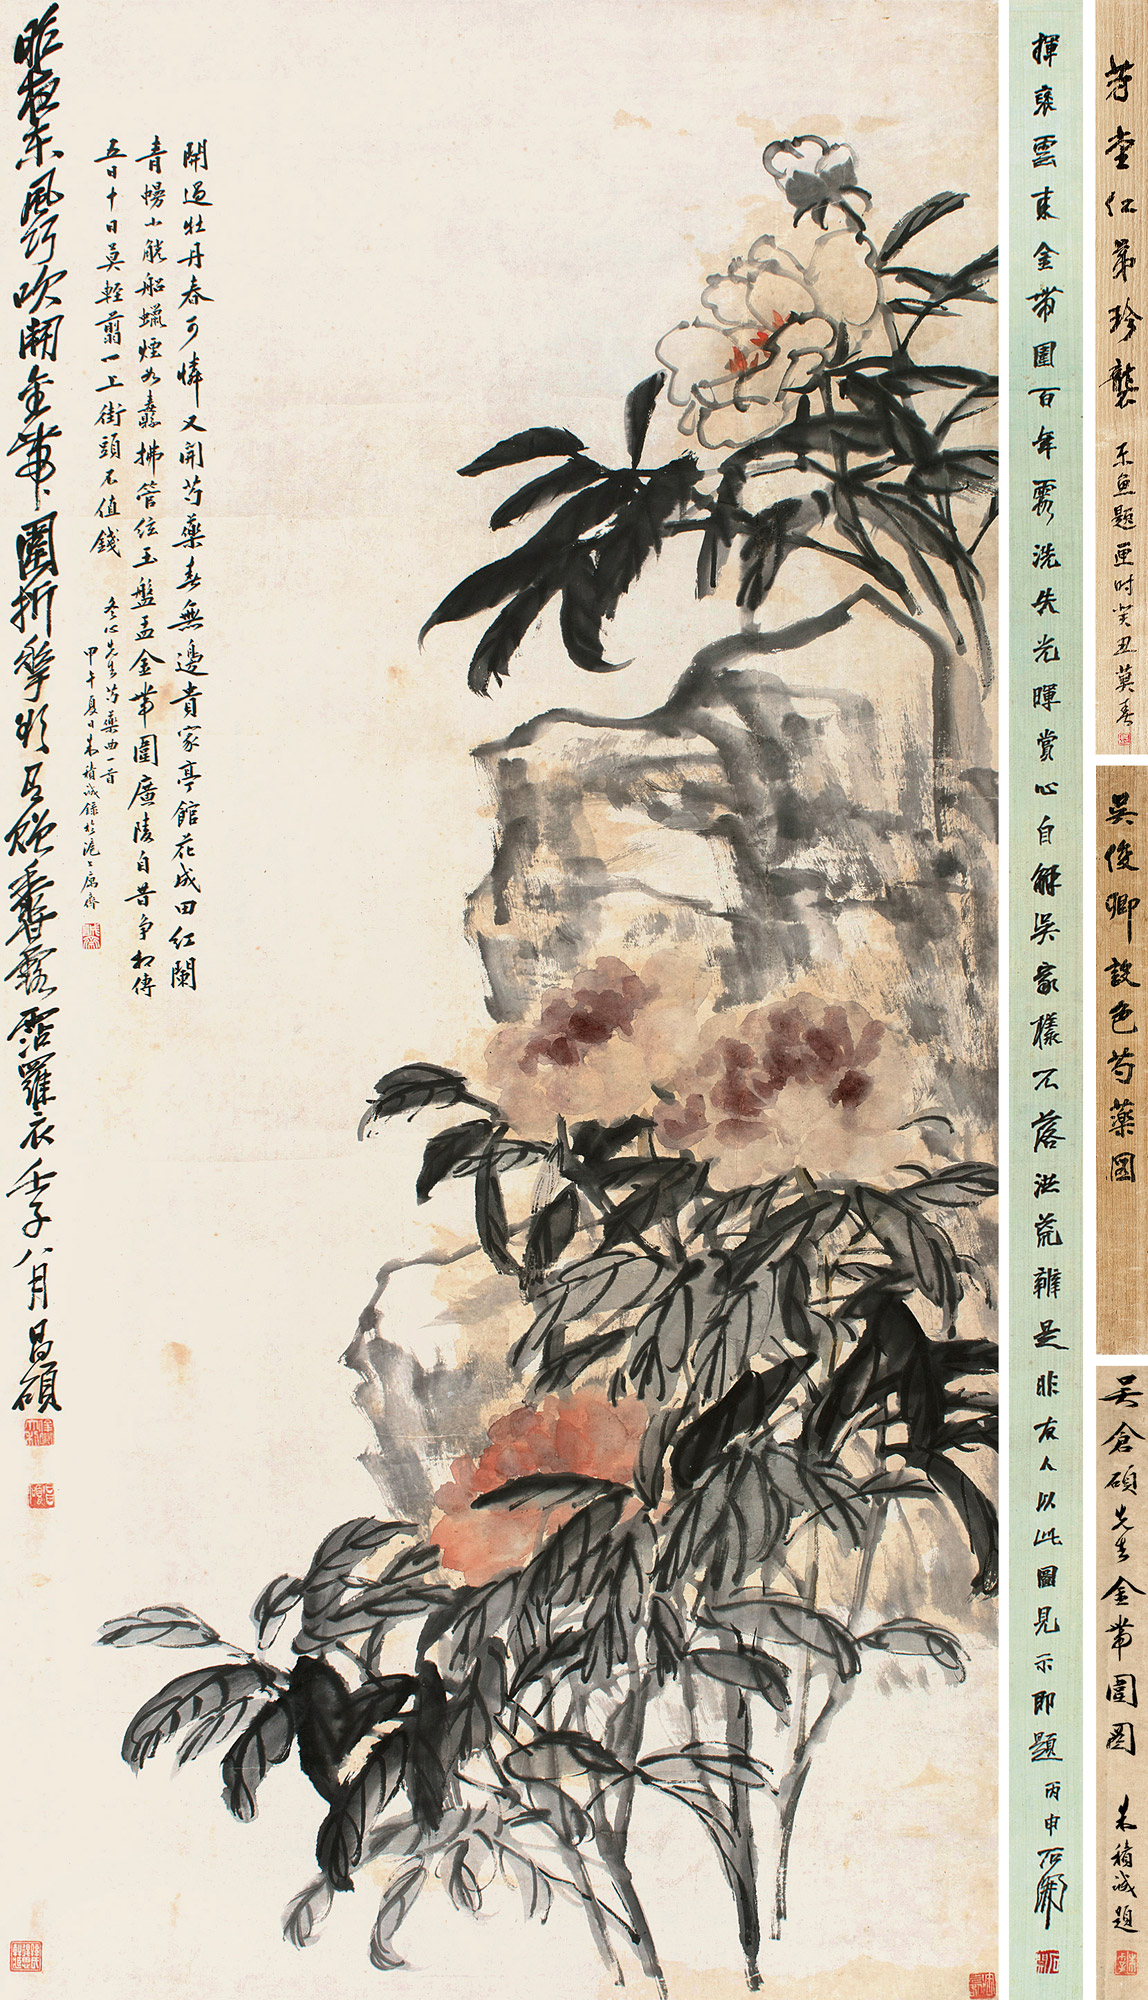 芳堂仁弟珍襲
東魚題画时癸丑莫春
吳俊卿設色芍藥圖
吴倉碩先生金带圍圖
朱積誠題
揮毫雲東金带圍百年雾洗失光暉賞心自解吳家樣不落洪荒辨是非友人以此圖見示即題
丙申石
開過牡丹春可憐又開芍藥春無邊貴家亭館花成田红闌
青幔小艤船蠟煙如纛拂管絃玉盤盂金带圍廣陵自昔争相傳
五日十日莫輕翦一上街頭不值錢
冬心先生芍藥曲一首
甲午夏日朱積誠錄於滬上
昨夜東風巧吹開金带圍折擎
香露霑羅衣壬子八月昌碩